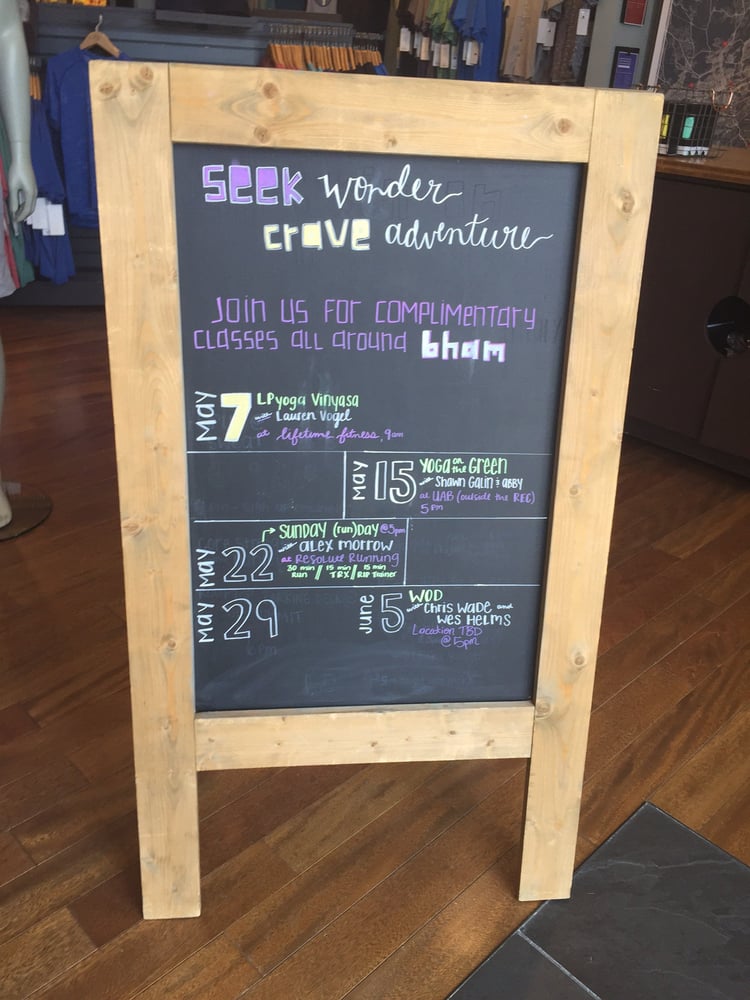 SEEK wonder
crave adventure
JOIN US FOR COMPLIMENTARY
CLASSES ALL around bham
May 7
LPyoga Vinyasa
with Lauren Vogel
at lifetime fitness, 9am
MAY 15
YOGA on the Green
with SHAWN GALIN & ABBY
at UAB (outside the REC)
5 pm
MAY 22
SUNDAY (run)DAY @5pm
with ALEX MORROW
at RESOLUTE RUNNING
30 min Run / 15 min TRX / 15 min RIP Trainer
MAY 29
June 5
WOD
with CHRIS WADE and
WES HELMS
Location TBD
@5pm